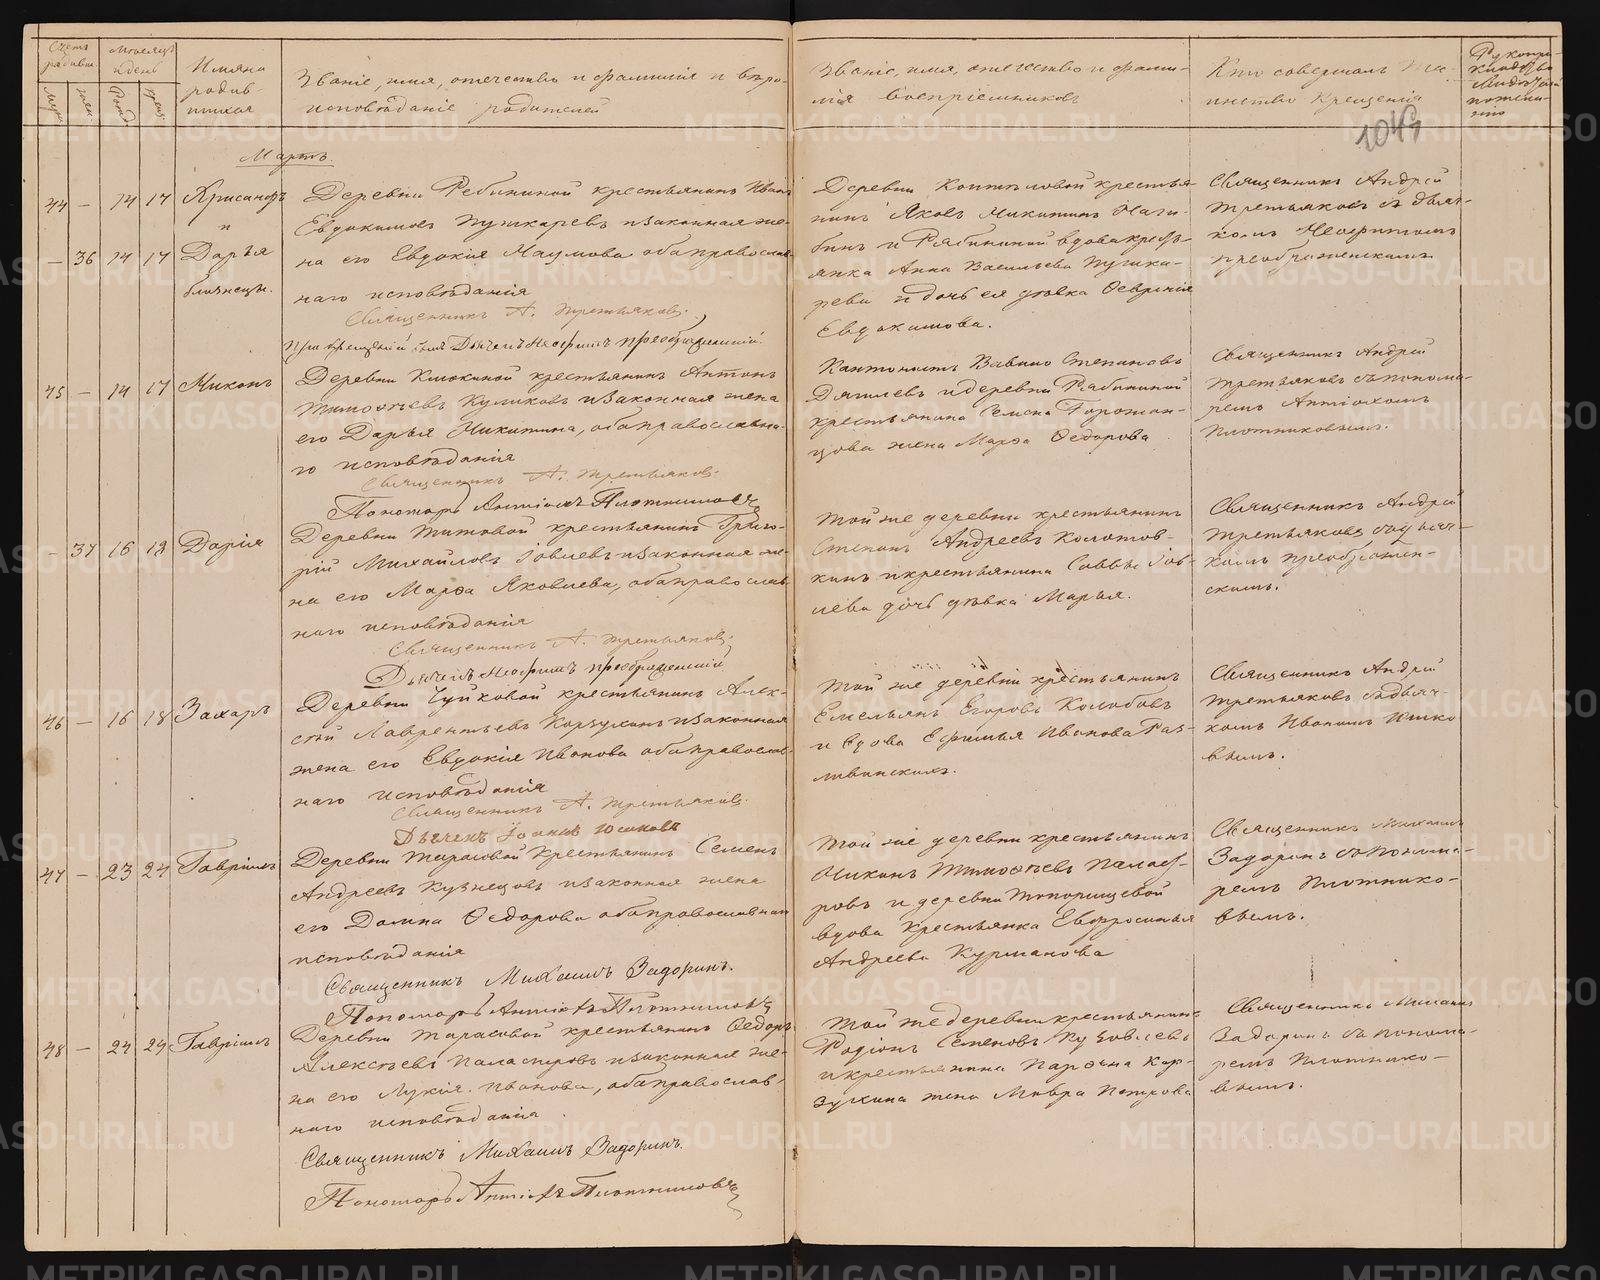 Счетъ родивш.
Мѣсяцъ и день
Имяна родив-
шихся
Званіе, имя, отечество и фамилія и вѣро-
исповѣданіе родителей
Званіе, имя, отечество и фами-
лія воспріемниковъ
Кто совершалъ та-
инство крещенія
104
Мартъ.
44 — 14 17 Хрисанфъ
и
— 36 14 17 Дарья
близнецы.
Деревни Рябининой крестьянинъ Иванъ
Евдокимовъ Пушкаревъ и законная же-
на его Евдокія Наумова, оба православ-
наго исповѣданія
Священникъ А. Третьяковъ.
При крещеніи былъ Дьячекъ Неофитъ Преображенскій.
Деревни Коптѣловой крестья-
нинъ Яковъ Никитинъ Наги-
бинъ и Рябининой вдова кресть-
янка Анна Васильева Пушка-
рева и дочь ея дѣвка Февронія
Евдокимова.
Священникъ Андрей
Третьяковъ съ дьяч-
комъ Неофитомъ
Преображенскимъ
45 — 14 17 Никонъ
Деревни Клюкиной крестьянинъ Антонъ
Тимофѣевъ Куликовъ и законная жена
его Дарья Никитина, оба православна-
го исповѣданія
Священникъ А. Третьяковъ.
Пономарь Антіохъ Плотниковъ
Кантонистъ Вавило Степановъ
Дягилевъ и деревни Рябининой
крестьянина Семена Горожан-
цова жена Марфа Федорова
Священникъ Андрей
Третьяковъ съ понома-
ремъ Антіохомъ
Плотниковымъ.
— 37 16 18 Дарія
Деревни Титовой крестьянинъ Григо-
рій Михайловъ Іовлевъ и законная же-
на его Марфа Яковлева, оба православ-
наго исповѣданія
Священникъ А. Третьяковъ.
Дьячекъ Неофитъ Преображенскій
Той же деревни крестьянинъ
Степанъ Андреевъ Колотов-
кинъ и крестьянина Саввы Іов-
лева дочь дѣвка Марья.
Священникъ Андрей
Третьяковъ съ дьяч-
комъ Преображен-
скимъ.
46 — 16 18 Захаръ
Деревни Чупковой крестьянинъ Алек-
сѣй Лаврентьевъ Корзухинъ и законная
жена его Евдокія Иванова оба православ-
наго исповѣданія
Священникъ А. Третьяковъ.
Дьячекъ Іоаннъ Юшковъ
Той же деревни крестьянинъ
Емельянъ Егоровъ Колобовъ
и вдова Ефимья Иванова Раз-
Священникъ Андрей
Третьяковъ съ дьяч-
комъ Иваномъ Юшко
вымъ.
47 — 23 24 Гавріилъ
Деревни Тарасовой крестьянинъ Семенъ
Андреевъ Кузнецовъ и законная жена
его Домна Федорова оба православнаго
исповѣданія
Священникъ Михаилъ Задоринъ.
Пономарь Антіохъ Плотниковъ
Той же деревни крестьянинъ
Никонъ Тимофѣевъ Паласт-
ровъ и деревни Топорищевой
вдова крестьянка Евфросинья
Андреева Курманова
Священникъ Михаилъ
Задоринъ съ понома-
ремъ Плотнико-
вымъ.
48 — 24 24 Гавріилъ
Деревни Тарасовой крестьянинъ Федоръ
Алексѣевъ Паластровъ и законная же-
на его Лукія Иванова, оба православ-
наго исповѣданія
Священникъ Михаилъ Задоринъ.
Пономарь Антіохъ Плотниковъ
Той же деревни крестьянинъ
Родіонъ Семеновъ Кузовлевъ
и крестьянина Парфена Кор-
зухина жена Мавра Петрова
Священникъ Михаилъ
Задоринъ съ понома-
ремъ Плотнико-
вымъ.
METRIKI.GASO-URAL.RU